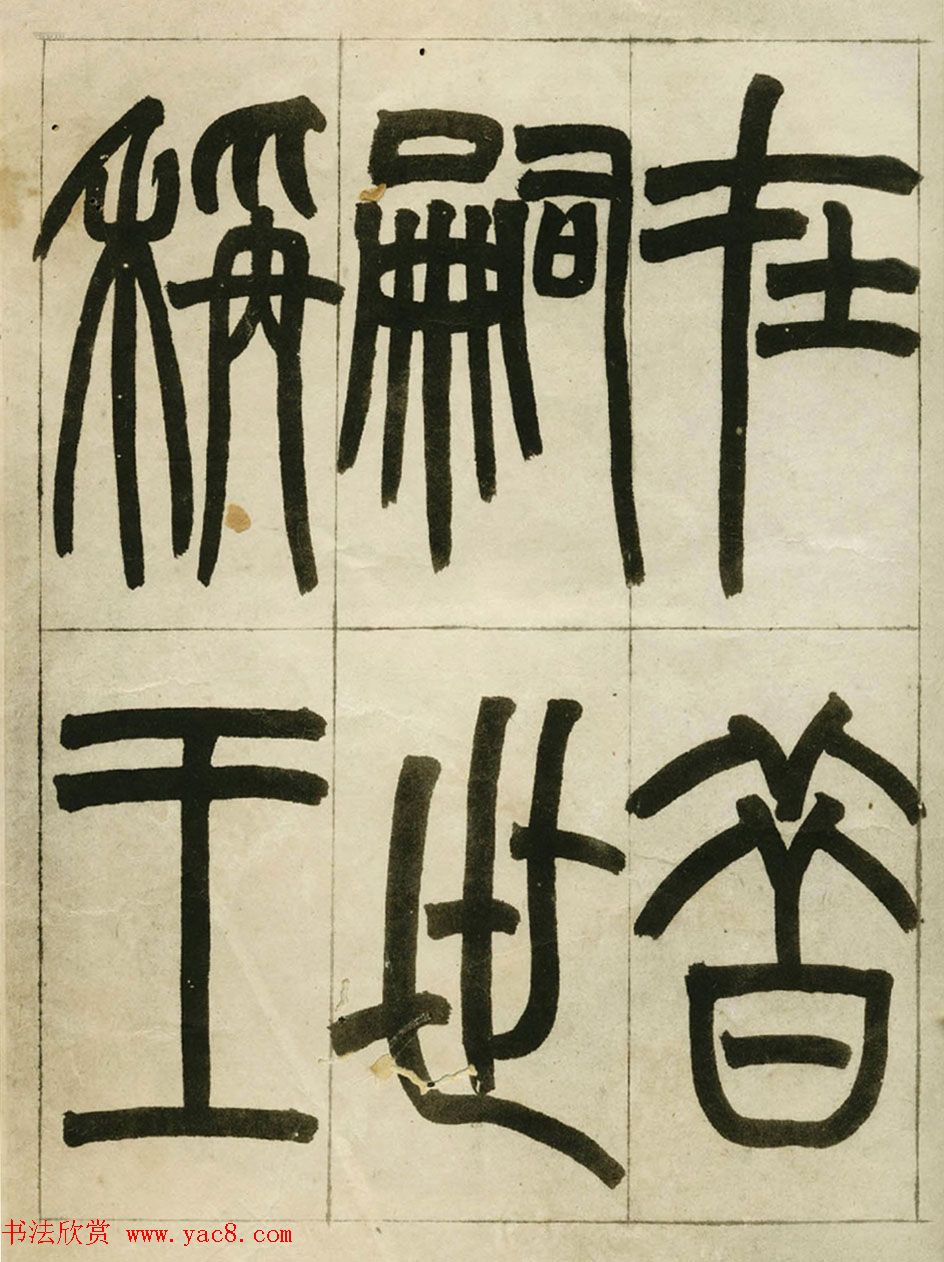 在昔
嗣世
稱王
书法欣赏 www.yac8.com